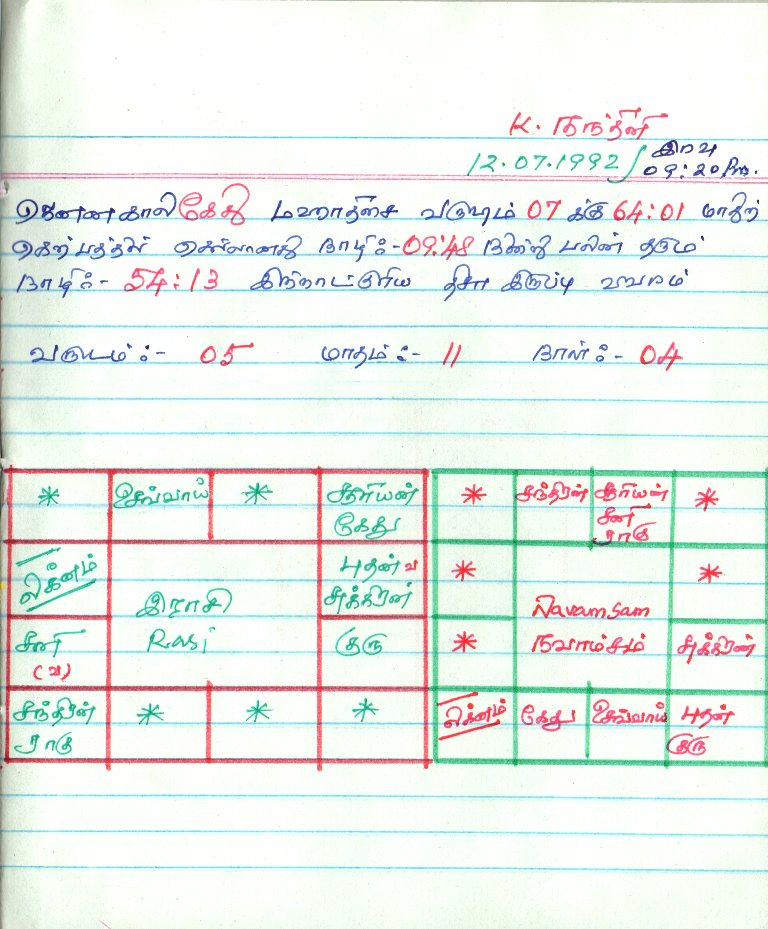 K. நந்தினி
12.07.1992 / இரவு 09:20 Pm.
ஜெனன கால கேது மஹாதிசை வருஷம் 07 க்கு 64:01
செல்லானது நாழி:- 09:48 நின்று பலன் தரும்
நாழி:- 54:13 இந்நாட்குரிய திசா இருப்பு
வருடம்:- 05 மாதம்:- 11 நாள்:- 04
* செவ்வாய் * சூரியன் கேது
லக்னம் புதன் வ சுக்கிரன்
இராசி Rasi
சனி (வ) குரு
சந்திரன் ராகு * * *
* சந்திரன் சூரியன் சனி ராகு *
* *
Navamsam நவாம்சம்
* சுக்கிரன்
லக்னம் கேது செவ்வாய் புதன் குரு